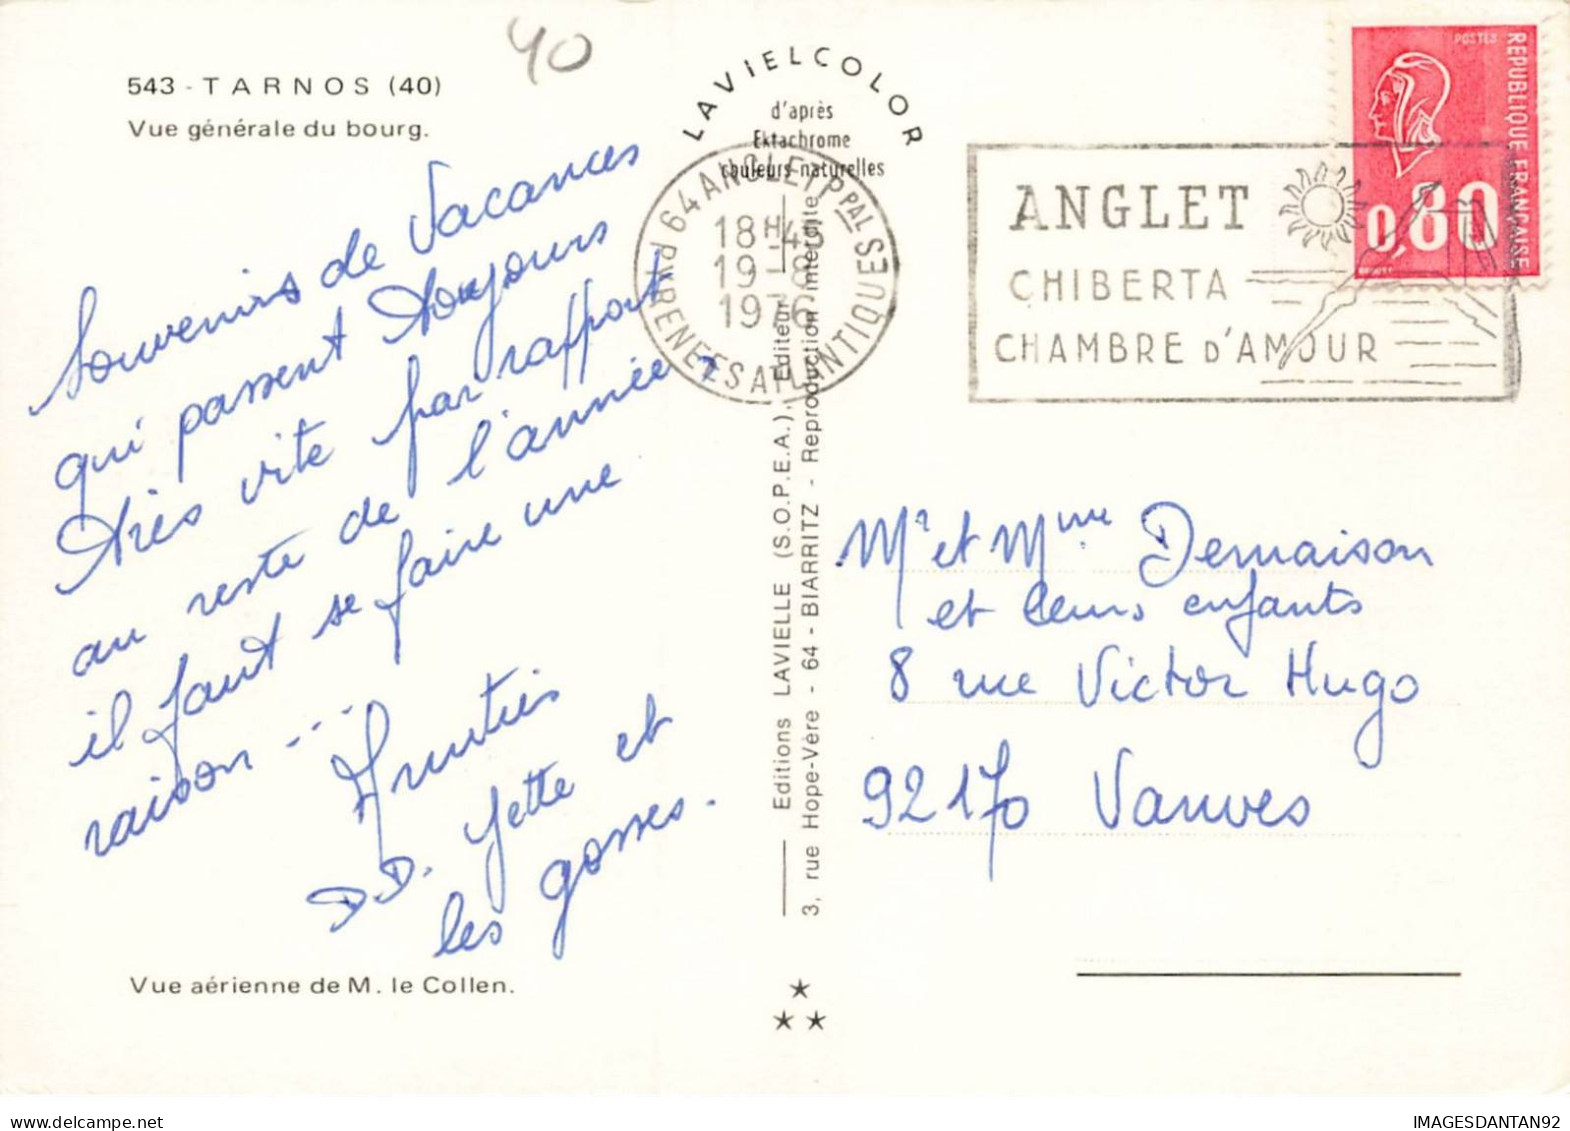 40
543 - TARNOS (40)
Vue générale du bourg.
Souvenirs de Vacances
qui passent toujours
très vite par rapport
au reste de l'année,
il faut se faire une
raison ...
Amitiés
D.D. Yette et
les gosses.
Vue aérienne de M. le Collen.
LAVIELCOLOR
d'après
Ektachrome
couleurs naturelles
64 ANGLET Ppal
PYRENEES ATLANTIQUES
18H45
19-8
1976
Editions LAVIELLE (S.O.P.E.A.), Editeur
3, rue Hope-Vère - 64 - BIARRITZ - Reproduction interdite
ANGLET
CHIBERTA
CHAMBRE D'AMOUR
POSTES
REPUBLIQUE FRANÇAISE
0,80
Mr et Mme Demaison
et leurs enfants
8 rue Victor Hugo
92170 Vanves
IMAGESDANTAN92